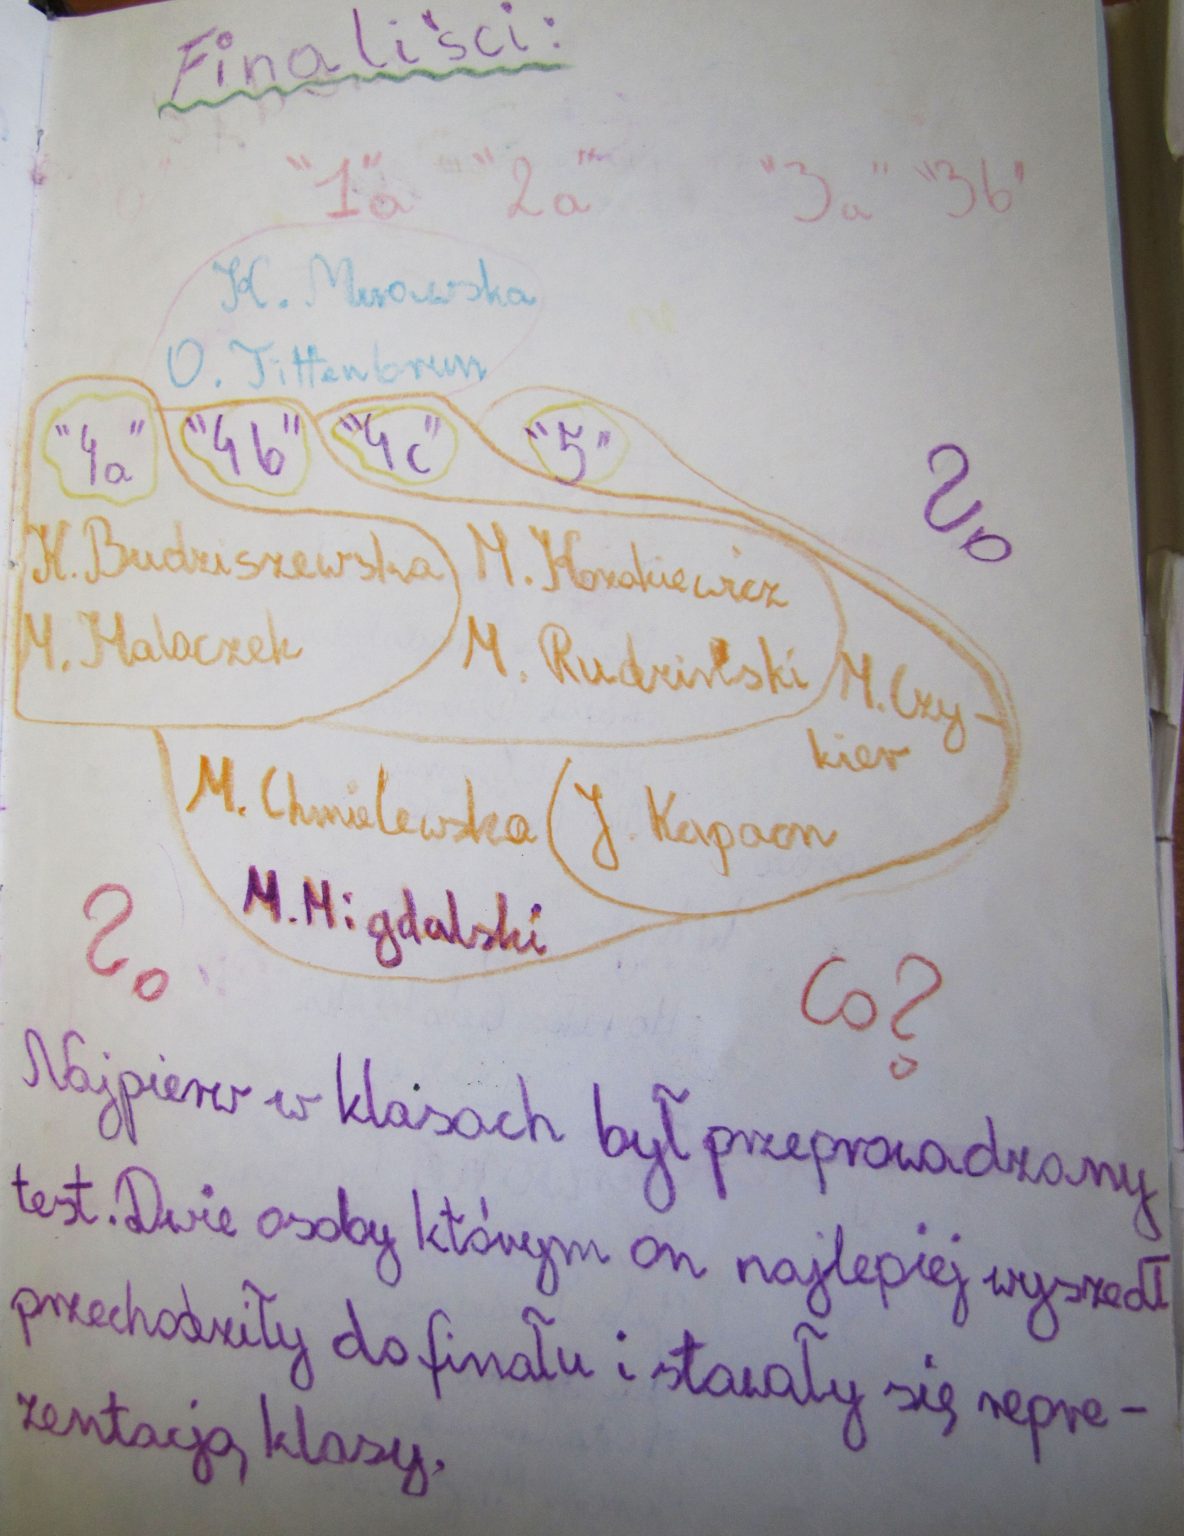 Finaliści:
"1a" "2a" "3a" "3b"
K. Murowska
O. Tittenbrun
"4a" "4b" "4c" "5"
K. Budziszewska M. Kozakiewicz
M. Malaczek M. Rudziński M. Czy-
kier
M. Chmielewska J. Kapaon
M. Migdalski
?
?
Co?
Najpierw w klasach był przeprowadzany
test. Dwie osoby którym on najlepiej wyszedł
przechodziły do finału i stawały się repre-
zentacją klasy.